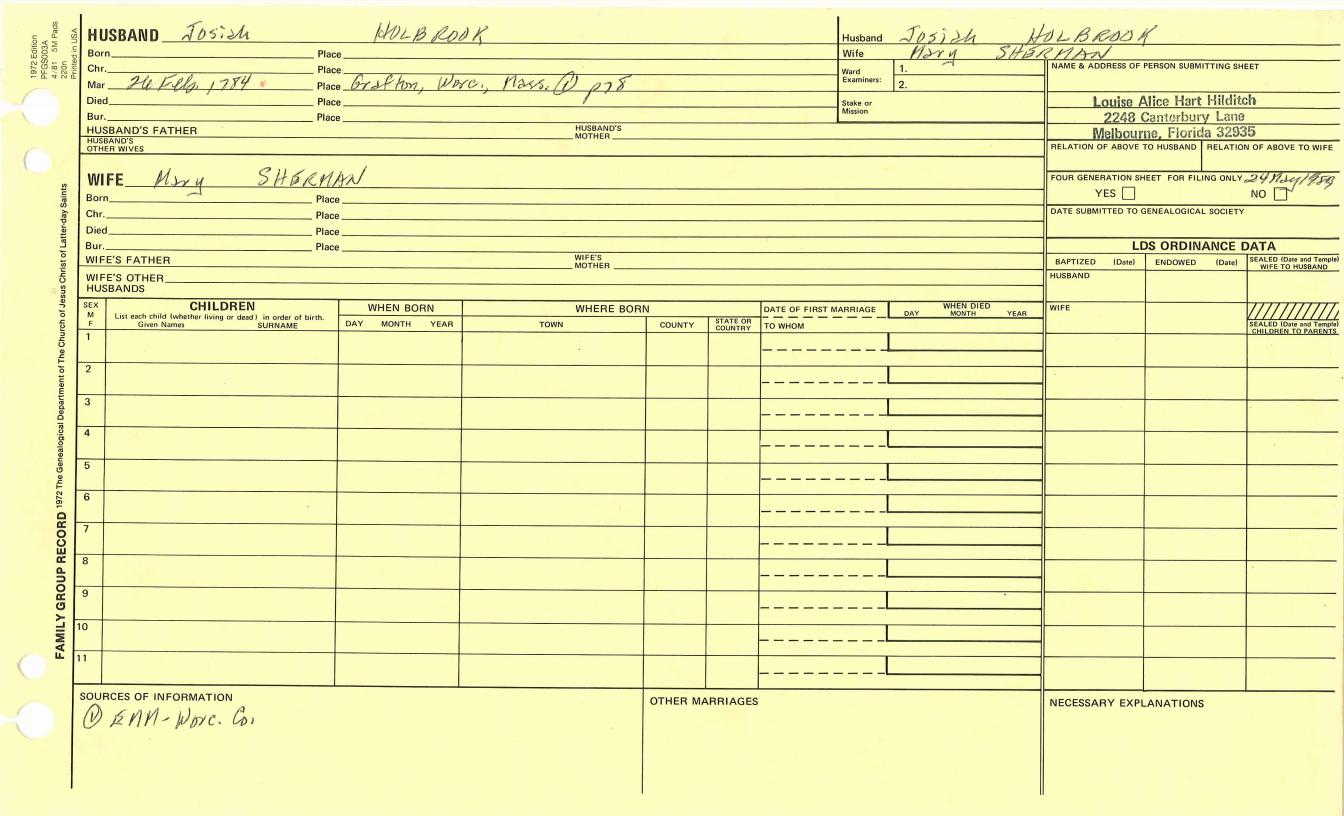 1972 Edition
PFGS003A
4/81 5M Pads
220n
Printed in USA
FAMILY GROUP RECORD 1972 The Genealogical Department of The Church of Jesus Christ of Latter-day Saints
HUSBAND Josiah HOLBROOK
Born Place
Chr. Place
Mar 26 Feb. 1784 Place Grafton, Worc., Mass. ① p78
Died Place
Bur. Place
HUSBAND'S FATHER HUSBAND'S MOTHER
HUSBAND'S OTHER WIVES
Husband Josiah HOLBROOK
Wife Mary SHERMAN
Ward Examiners: 1.
2.
Stake or Mission
NAME & ADDRESS OF PERSON SUBMITTING SHEET
Louise Alice Hart Hilditch
2248 Canterbury Lane
Melbourne, Florida 32935
RELATION OF ABOVE TO HUSBAND RELATION OF ABOVE TO WIFE
FOUR GENERATION SHEET FOR FILING ONLY 24 May 1989
YES NO
DATE SUBMITTED TO GENEALOGICAL SOCIETY
WIFE Mary SHERMAN
Born Place
Chr. Place
Died Place
Bur. Place
WIFE'S FATHER WIFE'S MOTHER
WIFE'S OTHER HUSBANDS
LDS ORDINANCE DATA
BAPTIZED (Date) ENDOWED (Date) SEALED (Date and Temple) WIFE TO HUSBAND
HUSBAND
WIFE
SEALED (Date and Temple) CHILDREN TO PARENTS
SEX
M
F
CHILDREN
List each child (whether living or dead) in order of birth.
Given Names SURNAME
WHEN BORN
DAY MONTH YEAR
WHERE BORN
TOWN COUNTY STATE OR COUNTRY
DATE OF FIRST MARRIAGE
TO WHOM
WHEN DIED
DAY MONTH YEAR
1
2
3
4
5
6
7
8
9
10
11
SOURCES OF INFORMATION
① EMM-Worc. Co.
OTHER MARRIAGES
NECESSARY EXPLANATIONS